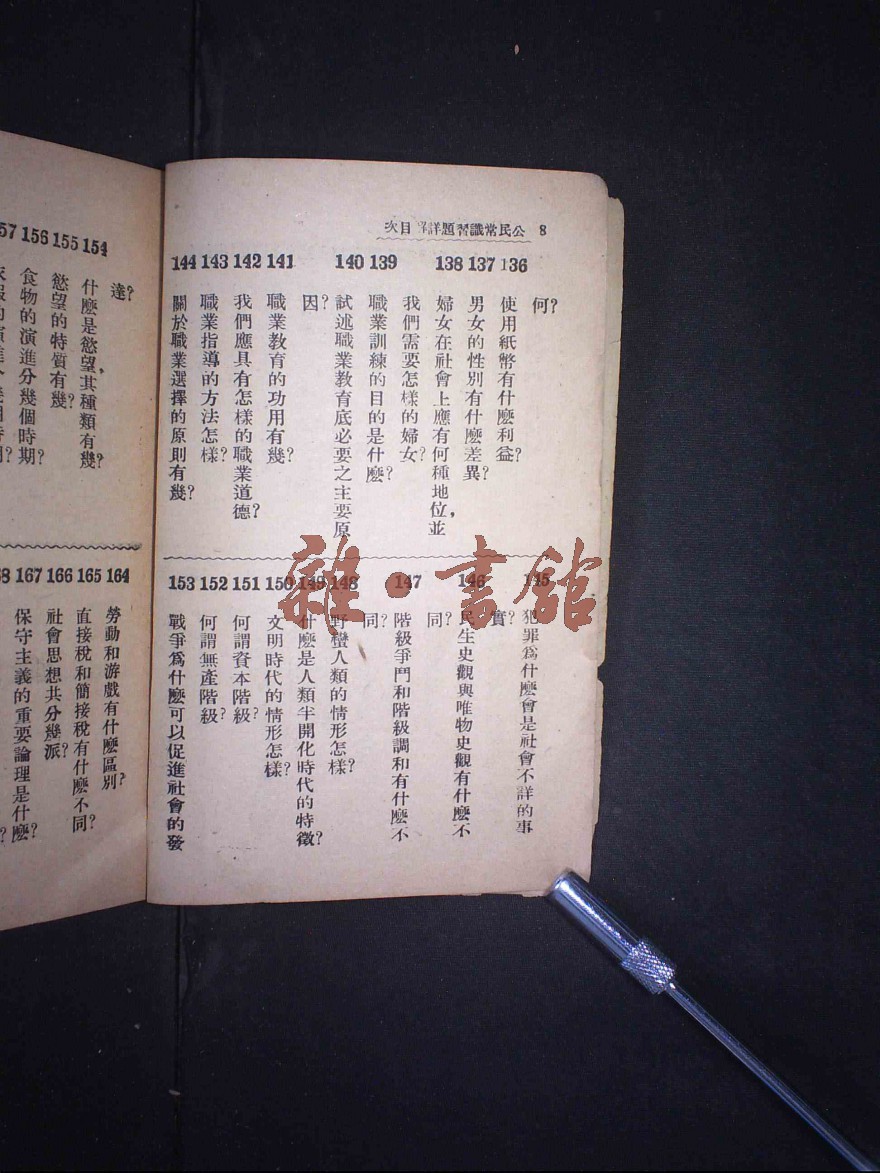 8 公民常識習題詳解目次
何?
136 使用紙幣有什麽利益?
137 男女的性別有什麽差異?
138 婦女在社會上應有何種地位，並
我們需要怎樣的婦女?
139 職業訓練的目的是什麽?
140 試述職業教育底必要之主要原
因?
141 職業教育的功用有幾?
142 我們應具有怎樣的職業道德?
143 職業指導的方法怎樣?
144 關於職業選擇的原則有幾?
145 犯罪爲什麽會是社會不詳的事
實?
146 民生史觀與唯物史觀有什麽不
同?
147 階級爭鬥和階級調和有什麽不
同?
148 野蠻人類的情形怎樣?
149 什麽是人類半開化時代的特徵?
150 文明時代的情形怎樣?
151 何謂資本階級?
152 何謂無產階級?
153 戰爭爲什麽可以促進社會的發
達?
154 什麽是慾望，其種類有幾?
155 慾望的特質有幾?
156 食物的演進分幾個時期?
57
164 勞動和游戲有什麽區別?
165 直接稅和簡接稅有什麽不同?
166 社會思想共分幾派?
167 保守主義的重要論理是什麽?
雜·書館